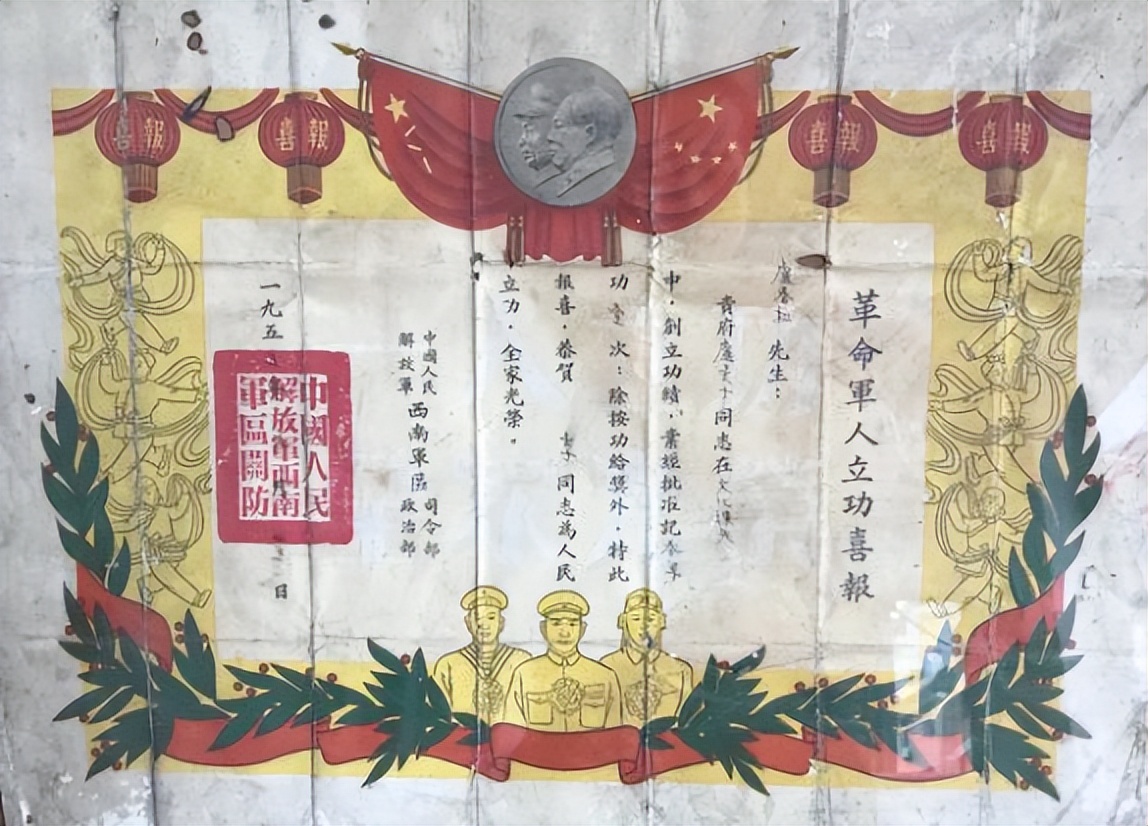 喜報
喜報
喜報
喜報
革命軍人立功喜報
盧 先生：
貴府盧 同志在文
中，創立功績，業經批准記 等
功 次：除按功給獎外，特此
報喜，恭賀 同志為人民
立功，全家光榮。
中國人民解放軍西南軍區司令部政治部
一九五 年 日
中國人民解放軍西南軍區關防